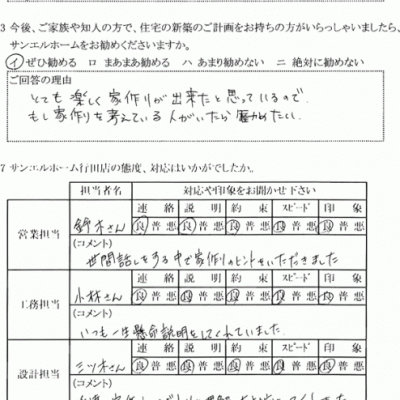 3 今後、ご家族や知人の方で、住宅の新築のご計画をお持ちの方がいらっしゃいましたら、
サンエルホームをお勧めくださいますか。
イ ぜひ勧める ロ まあまあ勧める ハ あまり勧めない ニ 絶対に勧めない
ご回答の理由
とても楽しく家作りが出来たと思っているので、
もし家作りを考えている人がいたら勧めたい。
7 サンエルホーム行田店の態度、対応はいかがでしたか。
担当者名 対応や印象をお聞かせ下さい
営業担当 鈴木さん 連絡 説明 約束 スピード 印象
良 普 悪 良 普 悪 良 普 悪 良 普 悪 良 普 悪
(コメント)
世間話しをする中で家作りのヒントをいただきました
工務担当 小林さん 連絡 説明 約束 スピード 印象
良 普 悪 良 普 悪 良 普 悪 良 普 悪 良 普 悪
(コメント)
いつも一生懸命説明をしてくれていました。
設計担当 三ツ木さん 連絡 説明 約束 スピード 印象
良 普 悪 良 普 悪 良 普 悪 良 普 悪 良 普 悪
(コメント)